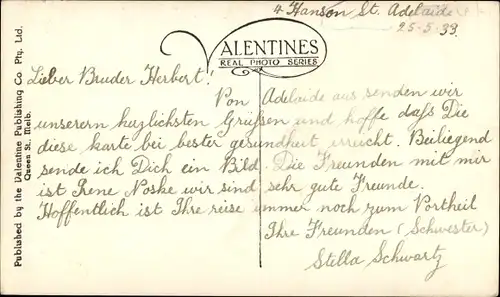 4 Hanson St. Adelaide
25-5-33
VALENTINES
REAL PHOTO SERIES
Lieber Bruder Herbert!
Von Adelaide aus senden wir
unserern herzlichsten Grüssen und hoffe dafs Die
diese karte bei bester gesundheit erreicht. Beiliegend
sende ich Dich ein Bild. Die Freunden mit mir
ist Irene Noske wir sind sehr gute Freunde.
Hoffentlich ist Ihre reise immer noch zum Vortheil
Ihre Freunden (Schwester)
Stella Schwartz
Published by the Valentine Publishing Co Pty. Ltd.
Queen St., Melb.